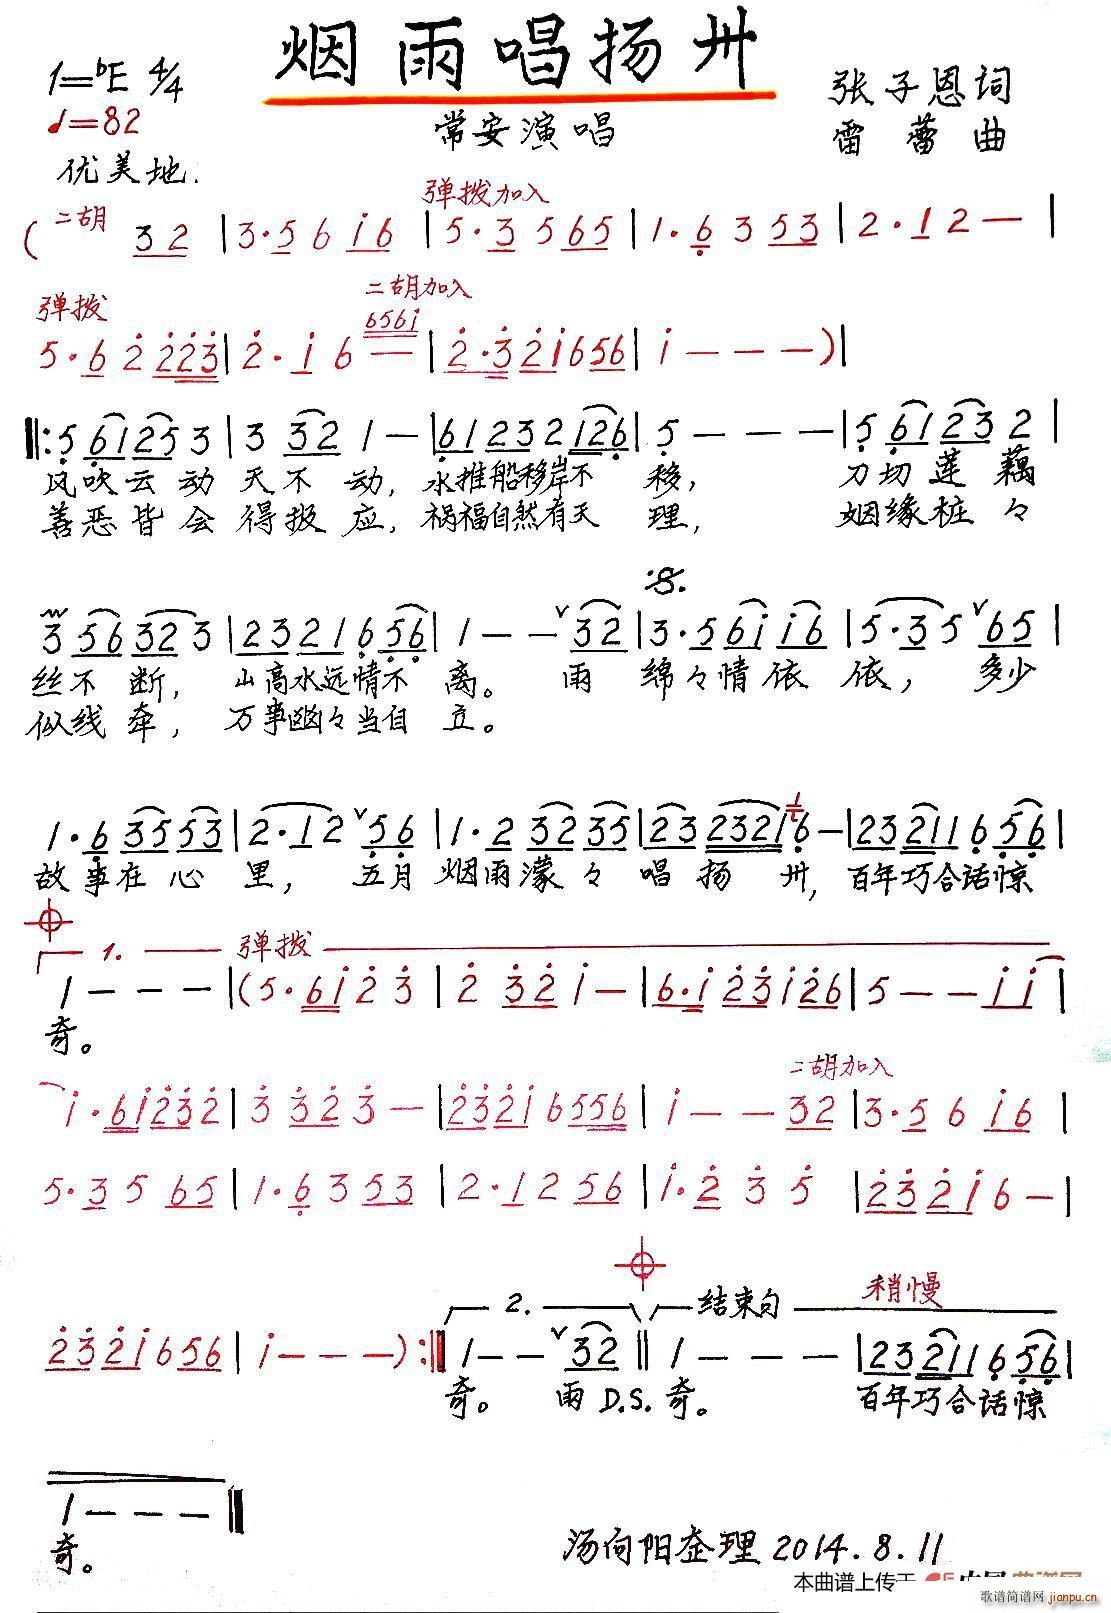 烟雨唱扬州
1=♭E 4/4
♩=82
常安演唱
张子恩词
雷蕾曲
优美地.
弹拨加入
(二胡 3 2 | 3·5 6 i 6 | 5·3 5 6 5 | 1·6 3 5 3 | 2·1 2 — |
二胡加入
弹拨 6 5 6 i
5·6 2 2 2 3 | 2·i 6 — | 2·3 2 i 6 5 6 | i — — — ) |
‖: 5 6 1 2 5 3 | 3 3 2 1 — | 6 1 2 3 2 1 2 6 | 5 — — — | 5 6 1 2 3 2 |
风吹云动天不动, 水推船移岸不移, 刀切莲藕
善恶皆会得报应, 祸福自然有天理, 姻缘桩々
3 5 6 3 2 3 | 2 3 2 1 6 5 6 | 1 — — 3 2 | 3·5 6 i i 6 | 5·3 5 6 5 |
丝不断, 山高水远情不离。雨绵々情依依, 多少
似线牵, 万事幽々当自立。
1·6 3 5 5 3 | 2·1 2 5 6 | 1·2 3 2 3 5 | 2 3 2 3 2 1 6 — | 2 3 2 1 1 6 5 6 |
故事在心里, 五月烟雨濛々唱扬州, 百年巧合话惊
1. 弹拨
1 — — — | (5·6 i 2 3 | 2 3 2 i — | 6·i 2 3 i 2 6 | 5 — — i i |
奇。
二胡加入
i·6 i 2 3 2 | 3 3 2 3 — | 2 3 2 i 6 5 5 6 | i — — 3 2 | 3·5 6 i 6 |
5·3 5 6 5 | 1·6 3 5 3 | 2·1 2 5 6 | i·2 3 5 | 2 3 2 i 6 — |
2. 结束句 稍慢
2 3 2 i 6 5 6 | i — — — ) :‖ 1 — — 3 2 ‖ 1 — — — | 2 3 2 1 1 6 5 6 |
奇。 雨 D.S. 奇。 百年巧合话惊
1 — — — ‖
奇。
汤向阳整理 2014.8.11
本曲谱上传于
歌谱简谱网
jianpu.cn